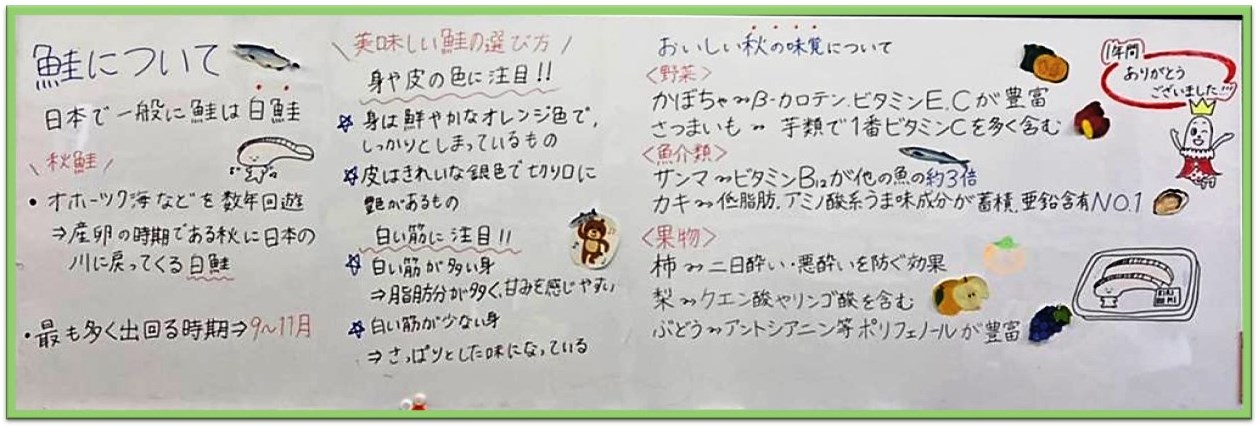 鮭について
日本で一般に鮭は白鮭
\ 秋鮭 /
・オホーツク海などを数年回遊
⇒産卵の時期である秋に日本の
川に戻ってくる白鮭
・最も多く出回る時期⇒9~11月
\ 美味しい鮭の選び方 /
身や皮の色に注目!!
☆身は鮮やかなオレンジ色で、
しっかりとしまっているもの
☆皮はきれいな銀色で切り口に
艶があるもの
白い筋に注目!!
☆白い筋が多い身
⇒脂肪分が多く、甘みを感じやすい
☆白い筋が少ない身
⇒さっぱりとした味になっている
おいしい秋の味覚について
<野菜>
かぼちゃ〰β-カロテン、ビタミンE、Cが豊富
さつまいも〰芋類で1番ビタミンCを多く含む
<魚介類>
サンマ〰ビタミンB₁₂が他の魚の約3倍
カキ〰低脂肪、アミノ酸系うま味成分が蓄積、亜鉛含有NO.1
<果物>
柿〰二日酔い・悪酔いを防ぐ効果
梨〰クエン酸やリンゴ酸を含む
ぶどう〰アントシアニン等ポリフェノールが豊富
1年間
ありがとう
ございました!!!